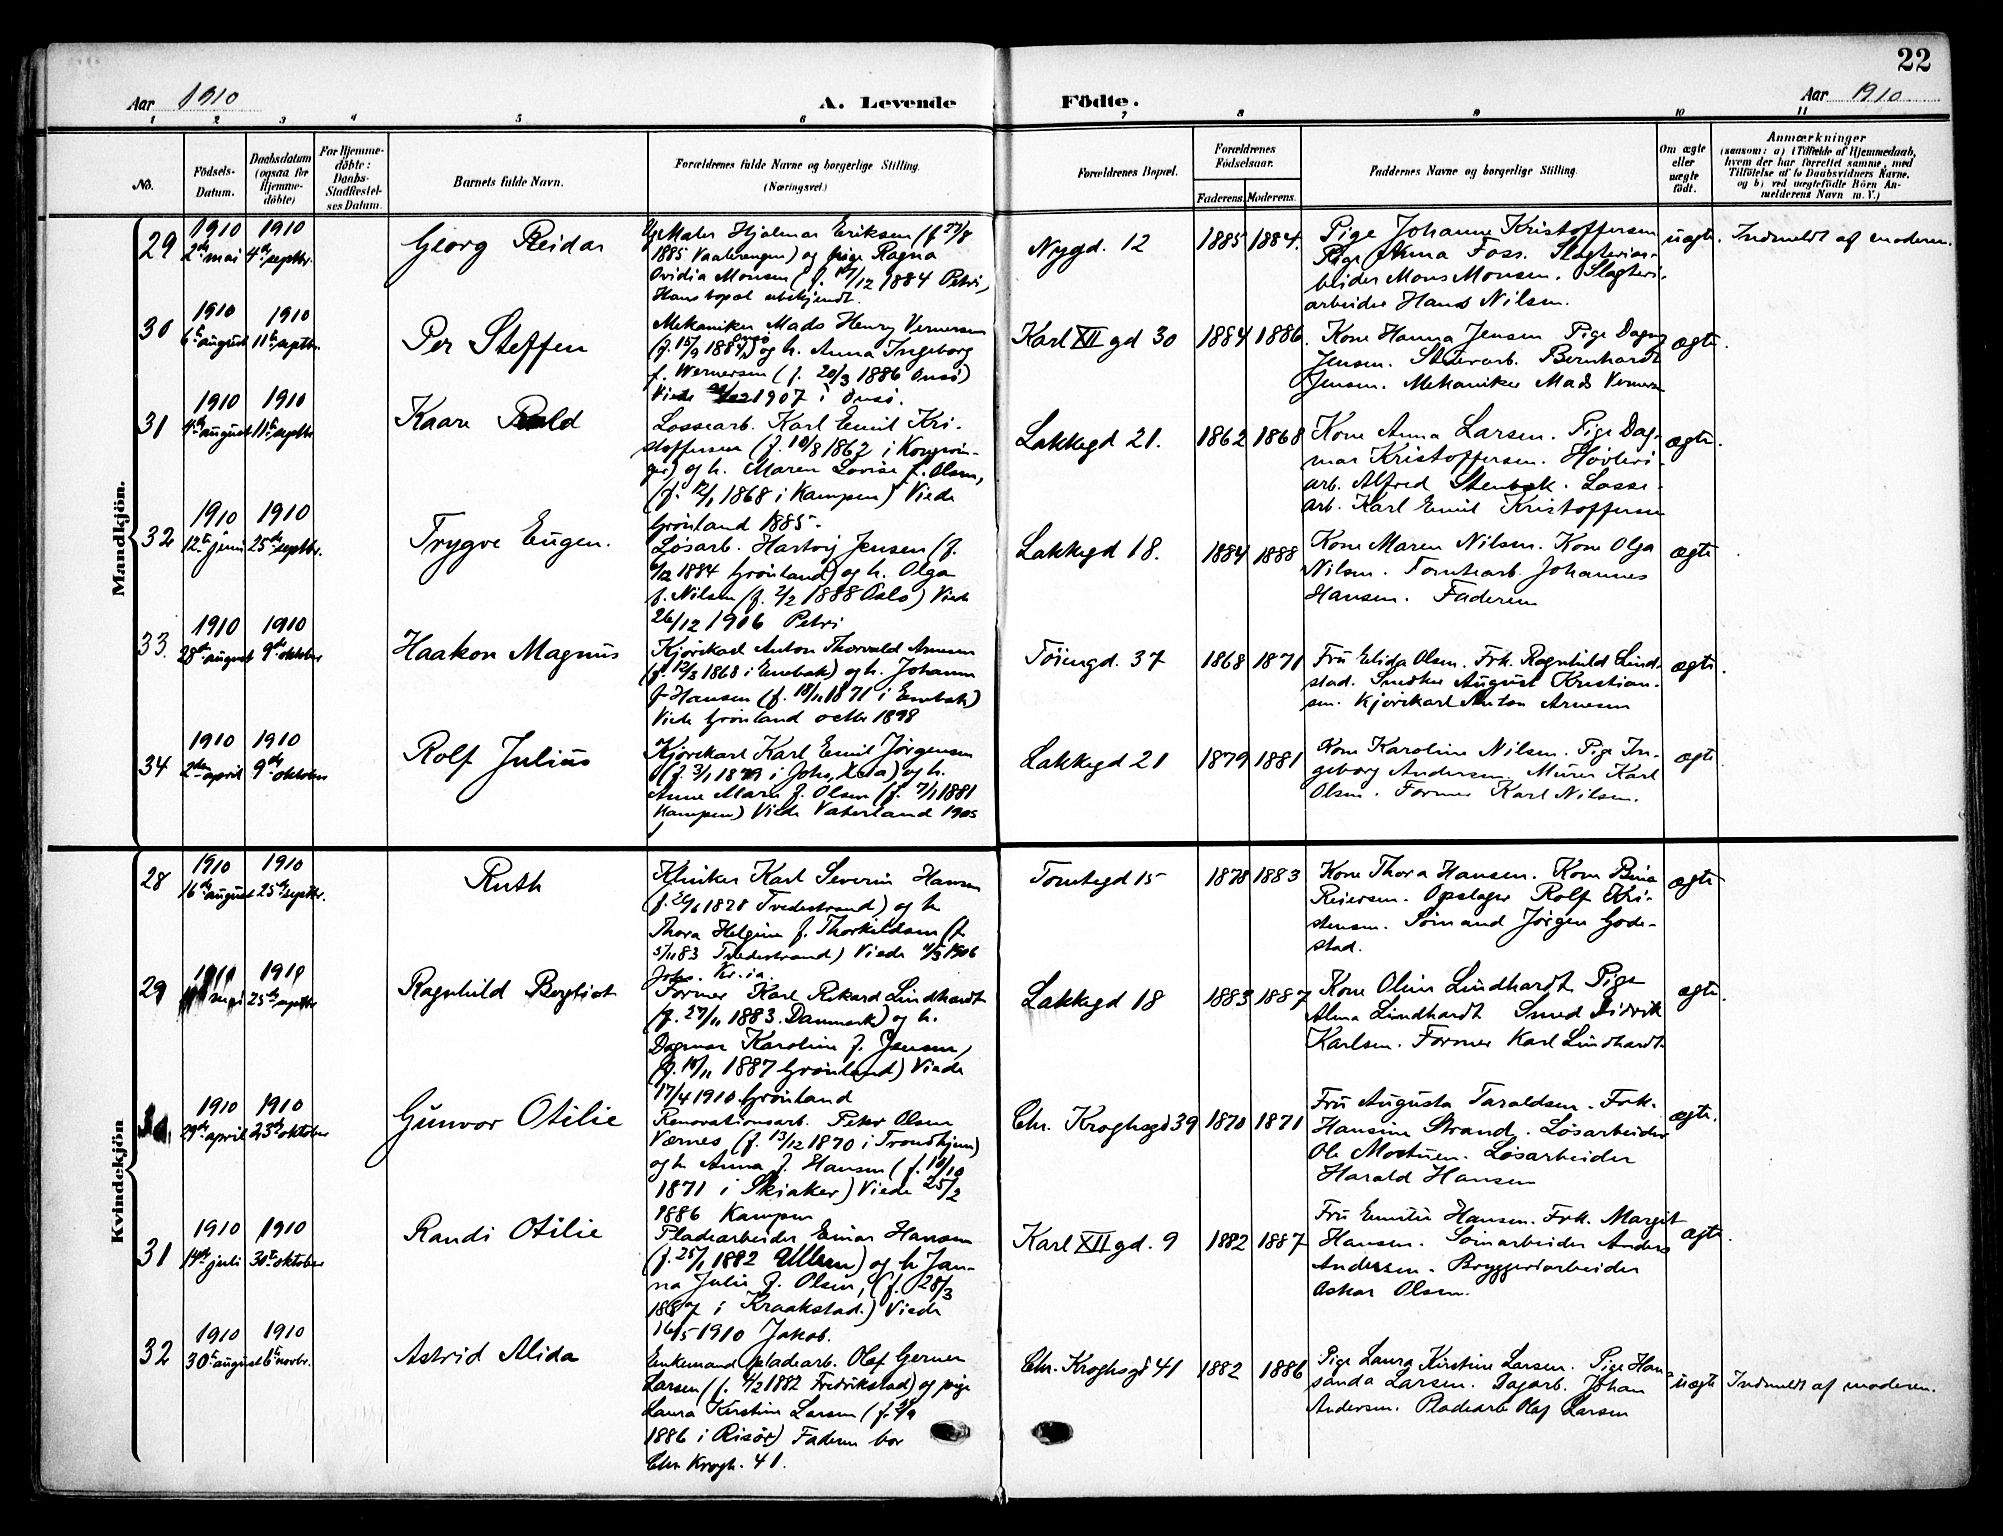 22
Aar 1910
A. Levende
Födte.
Aar 1910
1 2 3 4 5 6 7 8 9 10 11
No.
Födsels-
Datum.
Daabsdatum
(ogsaa for
Hjemme-
döbte)
For Hjemme-
döbte:
Daabs-
Stadfæstel-
ses Datum.
Barnets fulde Navn.
Forældrenes fulde Navne og borgerlige Stilling.
(Næringsvei.)
Forældrenes Bopæl.
Forældrenes
Födselsaar.
Faderens. Moderens.
Faddernes Navne og borgerlige Stilling.
Om ægte
eller
uægte
födt.
Anmærkninger
(saasom: a) i Tilfælde af Hjemmedaab,
hvem der har forrettet samme, med
Tilföielse af to Daabsvidners Navne,
og b) ved uægtefödte Börn An-
melderens Navn m. V.)
Mandkjön.
29
1910
2de mai
1910
4de septbr.
Georg Reidar
Maler Hjalmar Eriksen (f 27/8
1885 Vaalerengen) og pige Ragna
Ovidia Monsen (f. 17/12 1884 Petri,
Hans bopæl ubekjendt.
Nygd. 12
1885 1884.
Pige Johanne Kristoffersen
Pige Anna Foss. Slagteriar-
beider Mons Monsen. Slagteri-
arbeider Hans Nilsen.
uægte.
Indmeldt af moderen.
30
1910
6te august
1910
11te septbr.
Per Steffen
Mekaniker Mads Henry Vernersen
(f. 15/9 1884 Onsö) og h. Anna Ingeborg
f. Wernersen (f. 20/3 1886 Onsö)
Viede 1907 i Onsö.
Karl XII gd 30
1884 1886.
Kone Hanna Jensen Pige Dagny
Jensen. Stenarb. Bernhardt
Jensen. Mekaniker Mads Vernersen
ægte.
31
1910
august
1910
11te septbr
Kaare Rald
Lossearb. Karl Emil Kri-
stoffersen (f. 10/8 1862 i Kongsvin-
ger) og h. Maren Lovise f. Olsen,
(f. 12/1 1868 i Kampen) Viede
Grönland 1885.
Lakkegd 21.
1862 1868
Kone Anna Larsen. Pige Dag-
mar Kristoffersen. Hövleri-
arb. Alfred Stenbak. Losse-
arb. Karl Emil Kristoffersen
ægte.
32
1910
12te juni
1910
25de septbr.
Trygve Eugen.
Løsarb. Hartvig Jensen (f.
6/12 1884 Grönland) og h. Olga
f. Nilsen (f. 2/2 1888 Oslo) Viede
26/12 1906 Petri
Lakkegd 18.
1884 1888
Kone Maren Nilsen. Kone Olga
Nilsen. Tomtearb Johannes
Hansen. Faderen
ægte
33.
1910
28de august
1910
9de oktober
Haakon Magnus
Kjørekarl Anton Thorvald Arnesen
(f. 12/3 1868 i Enebak) og h. Johanne
f. Hansen (f. 18/11 1871 i Enebak)
Viede Grönland octbr 1898
Töiengd. 37
1868 1871
Fru Elida Olsen. Frk. Ragnhild Lind-
stad. Snedker August Kristian-
sen. Kjørekarl Anton Arnesen
ægte
34
1910
2den april
1910
9de oktober
Rolf Julius
Kjørekarl Karl Emil Jørgensen
(f. 3/1 1879 i Joh., Kria) og h.
Anne Marie f. Olsen (f. 7/1 1881
Kampen) Viede Vaterland 1905
Lakkegd 21
1879 1881
Kone Karoline Nilsen. Pige In-
geborg Andersen. Murer Karl
Olsen. Former Karl Nilsen.
ægte
Kvindekjön
28
1910
16de august
1910
25de septbr.
Ruth
Klinker Karl Severin Hansen
(f. 26/6 1878 Tvedestrand) og h
Thora Helgine f. Thorkildsen (f.
5/11 83 Tvedestrand) Viede 4/3 1906
Johs. Kr.ia.
Tomtegd 15
1878 1883
Kone Thora Hansen. Kone Bina
Reiersen. Opslager Rolf Kri-
stensen. Sömand Jörgen Gode-
stad.
ægte
29
1910
mai
1910
25de septbr
Ragnhild Bergliot
Former Karl Rikard Lindhardt
(f. 27/11 1883. Danmark) og h.
Dagmar Karoline f. Jensen,
(f. 10/11 1887 Grönland) Viede
17/4 1910 Grönland
Lakkegd 18
1883 1887
Kone Oline Lindhardt Pige
Alma Lindhardt Smed Didrik
Karlsen. Former Karl Lindhardt.
ægte.
30.
1910
29de april
1910
23de oktober
Gunvor Otilie
Renovationsarb. Peter Olsen
Værnes (f. 13/12 1870 i Trondhjem)
og h. Anna f. Hansen (f. 10/10
1871 i Skiaker) Viede 25/2
1886 Kampen
Chr. Kroghsgd 39
1870 1871
Fru Augusta Taraldsen. Frk.
Hansine Strand. Løsarbeider
Ole Mostuen. Løsarbeider
Harald Hansen
ægte.
31
1910
14de juli
1910
30te oktober
Randi Otilie
Pladearbeider Einar Hansen
(f. 25/1 1882 Ullern) og h Jan-
na Julie f. Olsen, (f. 28/3
1887 i Kraakstad.) Viede
16/5 1910 Jakob.
Karl XII gd. 9
1882 1887
Fru Emilie Hansen. Frk. Margit
Hansen. Sömarbeider Anders
Andersen. Bryggeriarbeider
Oskar Olsen.
ægte.
32
1910
30te august
1910
6te novbr.
Astrid Alida
Enkemand pladearb. Olaf Gerner
Larsen (f. 4/2 1882 Fredrikstad) og pige
Laura Kirstine Larsen (f. 28/9
1886 i Risör) Faderen bor
Chr. Krogh. 41.
Chr. Kroghsgd 41
1882 1886
Pige Laura Kirstine Larsen. Pige Han-
sanda Larsen. Dagarb. Johan
Andersen. Pladearb Olaf Larsen
uægte
Indmeldt af moderen.